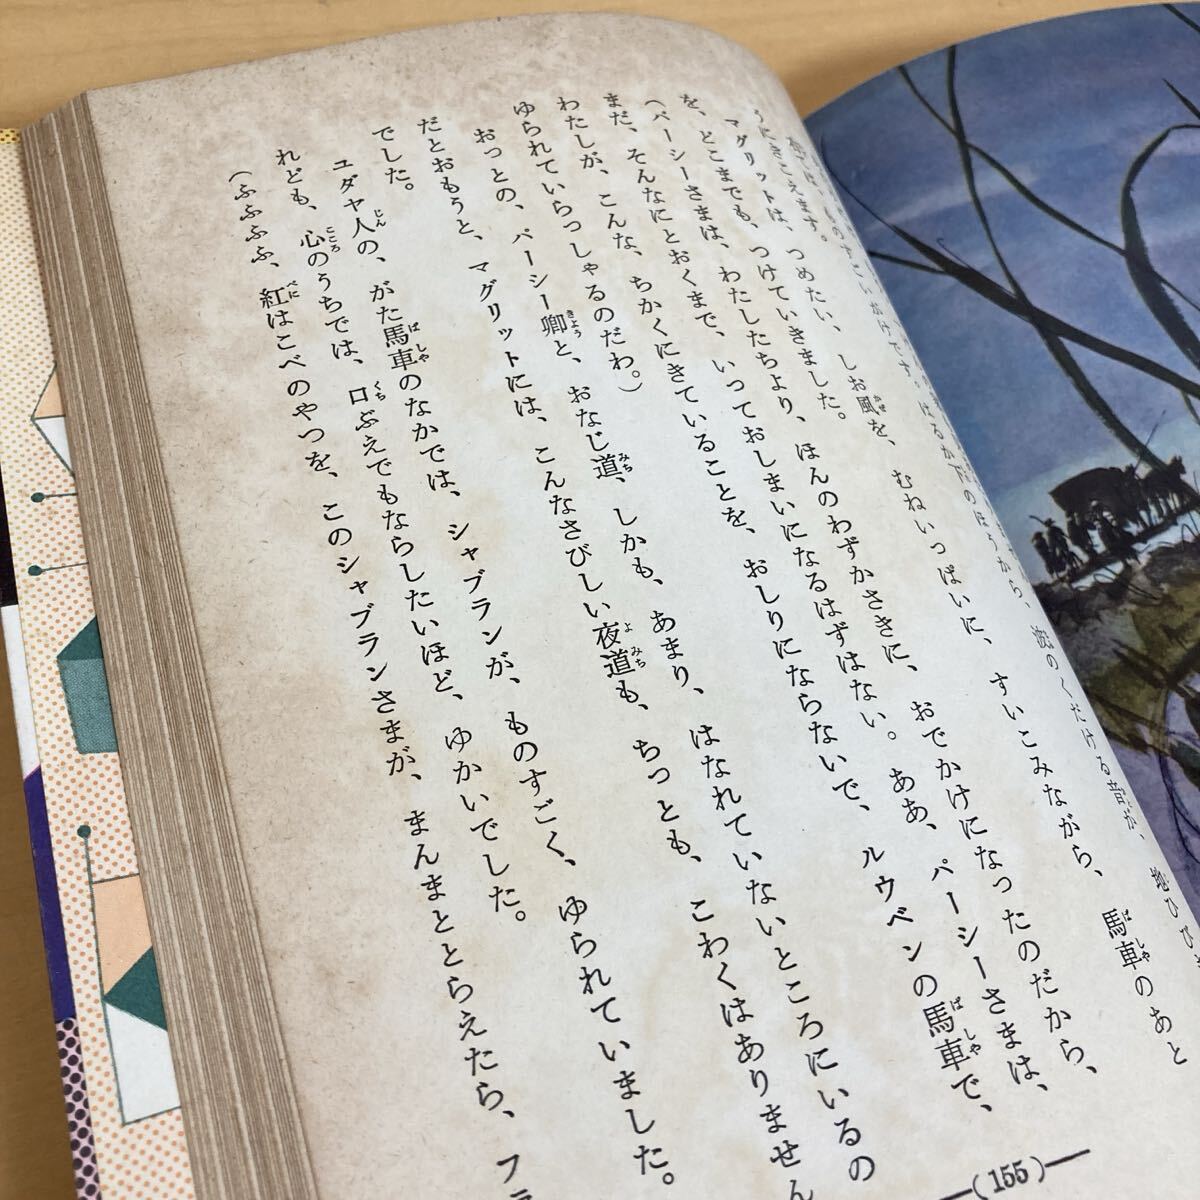 ものすごいがけです。はるか下のほうから、波のくだける音が、地ひびき
うにきこえます。
マグリットは、つめたい、しお風を、むねいっぱいに、すいこみながら、馬車のあと
を、どこまでも、つけていきました。
（パーシーさまは、わたしたちより、ほんのわずかさきに、おでかけになったのだから、
まだ、そんなにとおくまで、いっておしまいになるはずはない。ああ、パーシーさまは、
わたしが、こんな、ちかくにきていることを、おしりにならないで、ルウベンの馬車で、
ゆられていらっしゃるのだわ。）
おっとの、パーシー卿と、おなじ道、しかも、あまり、はなれていないところにいるの
だとおもうと、マグリットには、こんなさびしい夜道も、ちっとも、こわくはありません
でした。
ユダヤ人の、がた馬車のなかでは、シャブランが、ものすごく、ゆられていました。
れども、心のうちでは、口ぶえでもならしたいほど、ゆかいでした。
（ふふふふ、紅はこべのやつを、このシャブランさまが、まんまととらえたら、フラ
(155)